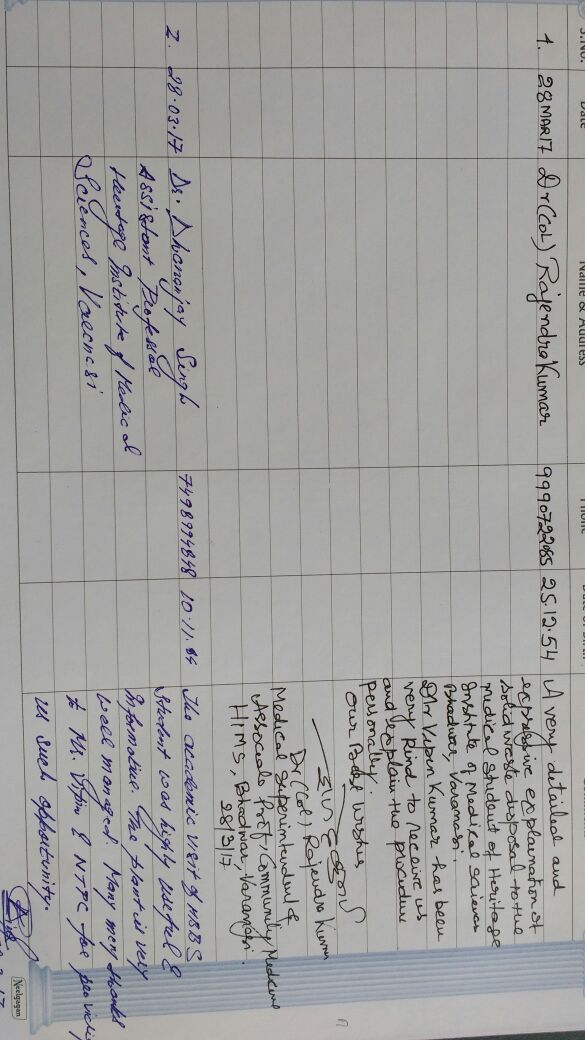 S.No. Date Name & Address Phone
1. 28MAR17 Dr(COL) Rajendra Kumar 9990722085 25.12.54
A very detailed and
expressive explanation of
solid waste disposal to the
medical student of Heritage
Institute of Medical Sciences
Bhadwar, Varanasi.
Mr Vipin Kumar has been
very kind to receive us
and explain the procedure
personally.
Our Best wishes
Dr(Col) Rajendra Kumar
Medical Superintendent &
Associate Prof, Community Medicine
HIMS, Bhadwar, Varanasi.
28/3/17
2. 28.03.17 Dr. Dhananjay Singh 7498994848 10.11.84
Assistant Professor
Heritage Institute of Medical
Sciences, Varanasi
The academic visit of MBBS
Student was highly useful &
Informative. The plant is very
well managed. Many many thanks
to Mr. Vipin & NTPC for providing
us such opportunity.
Neelgagan